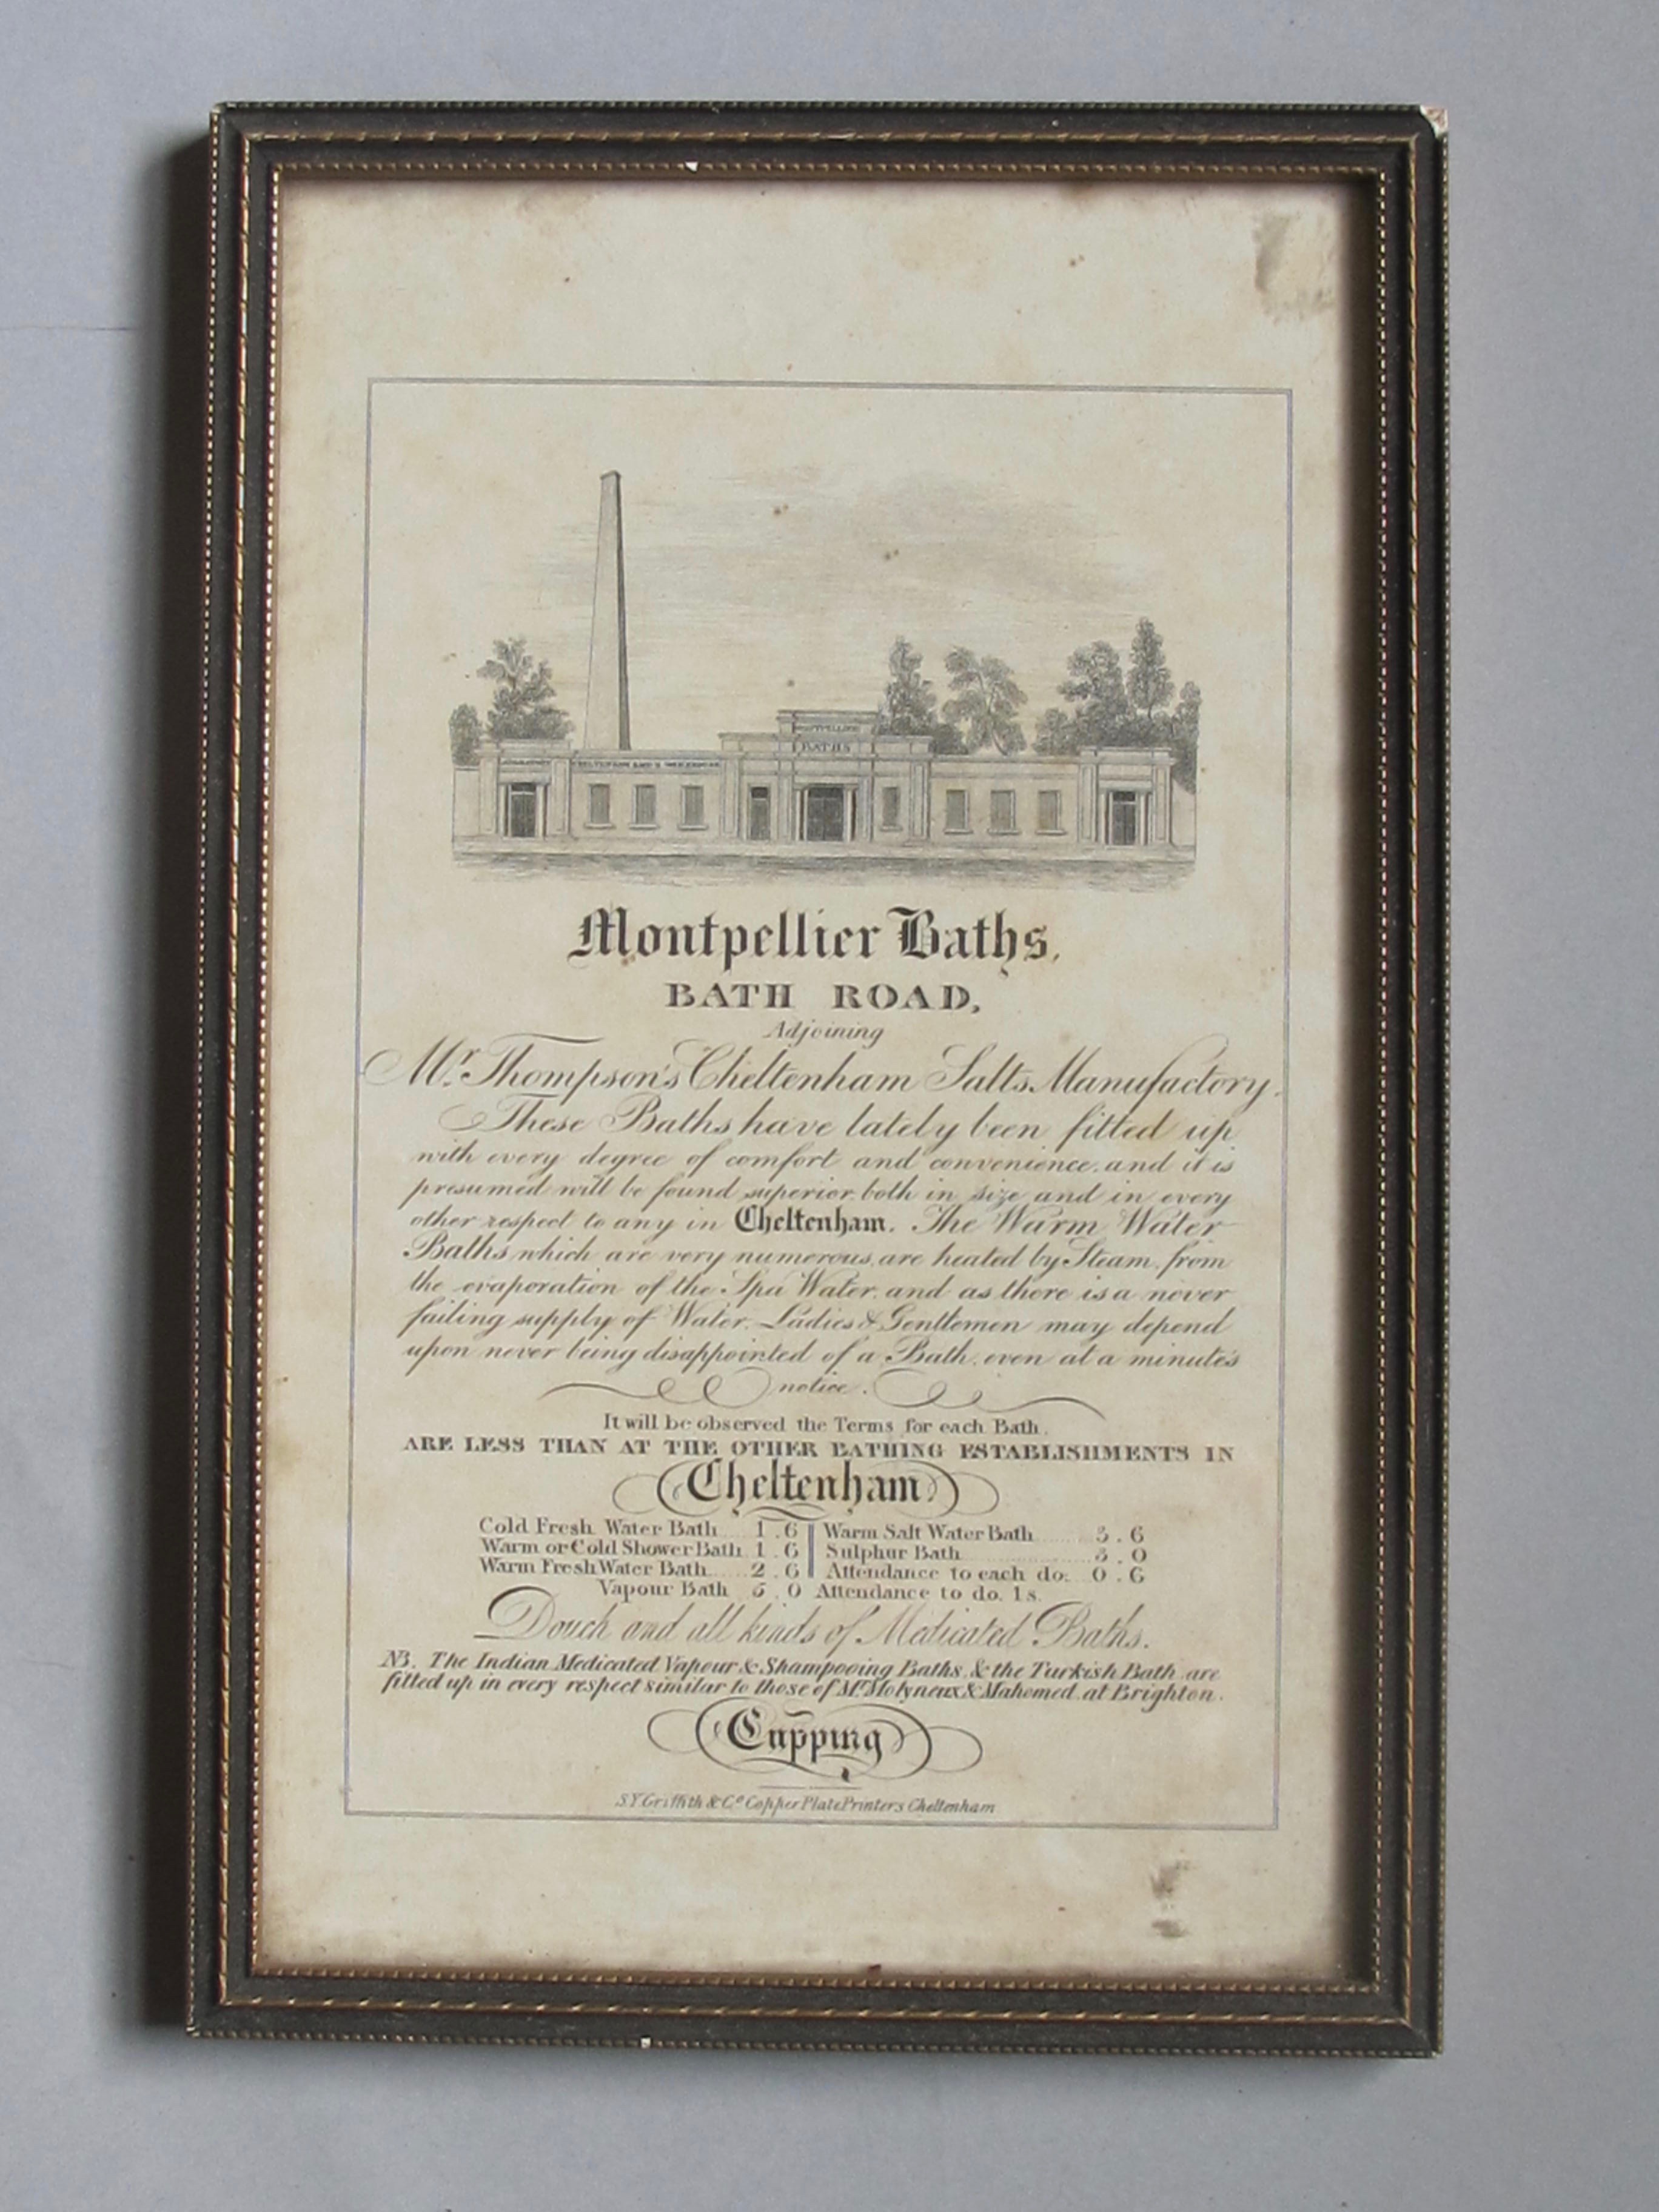 BATHS
Montpellier Baths,
BATH ROAD,
Adjoining
Mr. Thompson's Cheltenham Salts Manufactory.
These Baths have lately been fitted up
with every degree of comfort and convenience, and it is
presumed will be found superior, both in size and in every
other respect to any in Cheltenham. The Warm Water
Baths which are very numerous, are heated by Steam, from
the evaporation of the Spa Water, and as there is a never
failing supply of Water, Ladies & Gentlemen may depend
upon never being disappointed of a Bath, even at a minute's
notice.
It will be observed the Terms for each Bath,
ARE LESS THAN AT THE OTHER BATHING ESTABLISHMENTS IN
Cheltenham
Cold Fresh Water Bath 1.6 Warm Salt Water Bath 3.6
Warm or Cold Shower Bath 1.6 Sulphur Bath 3.0
Warm Fresh Water Bath 2.6 Attendance to each do. 0.6
Vapour Bath 5.0 Attendance to do. 1s.
Douch and all kinds of Medicated Baths.
NB. The Indian Medicated Vapour & Shampooing Baths, & the Turkish Bath, are
fitted up in every respect similar to those of Mr. Molyneux & Mahomed, at Brighton.
Cupping
S.Y. Griffith & Co. Copper Plate Printers Cheltenham